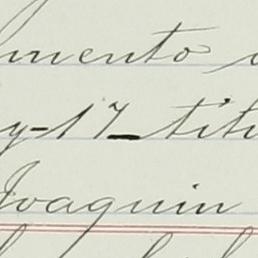 mento
y-17_ titu
Joaquin